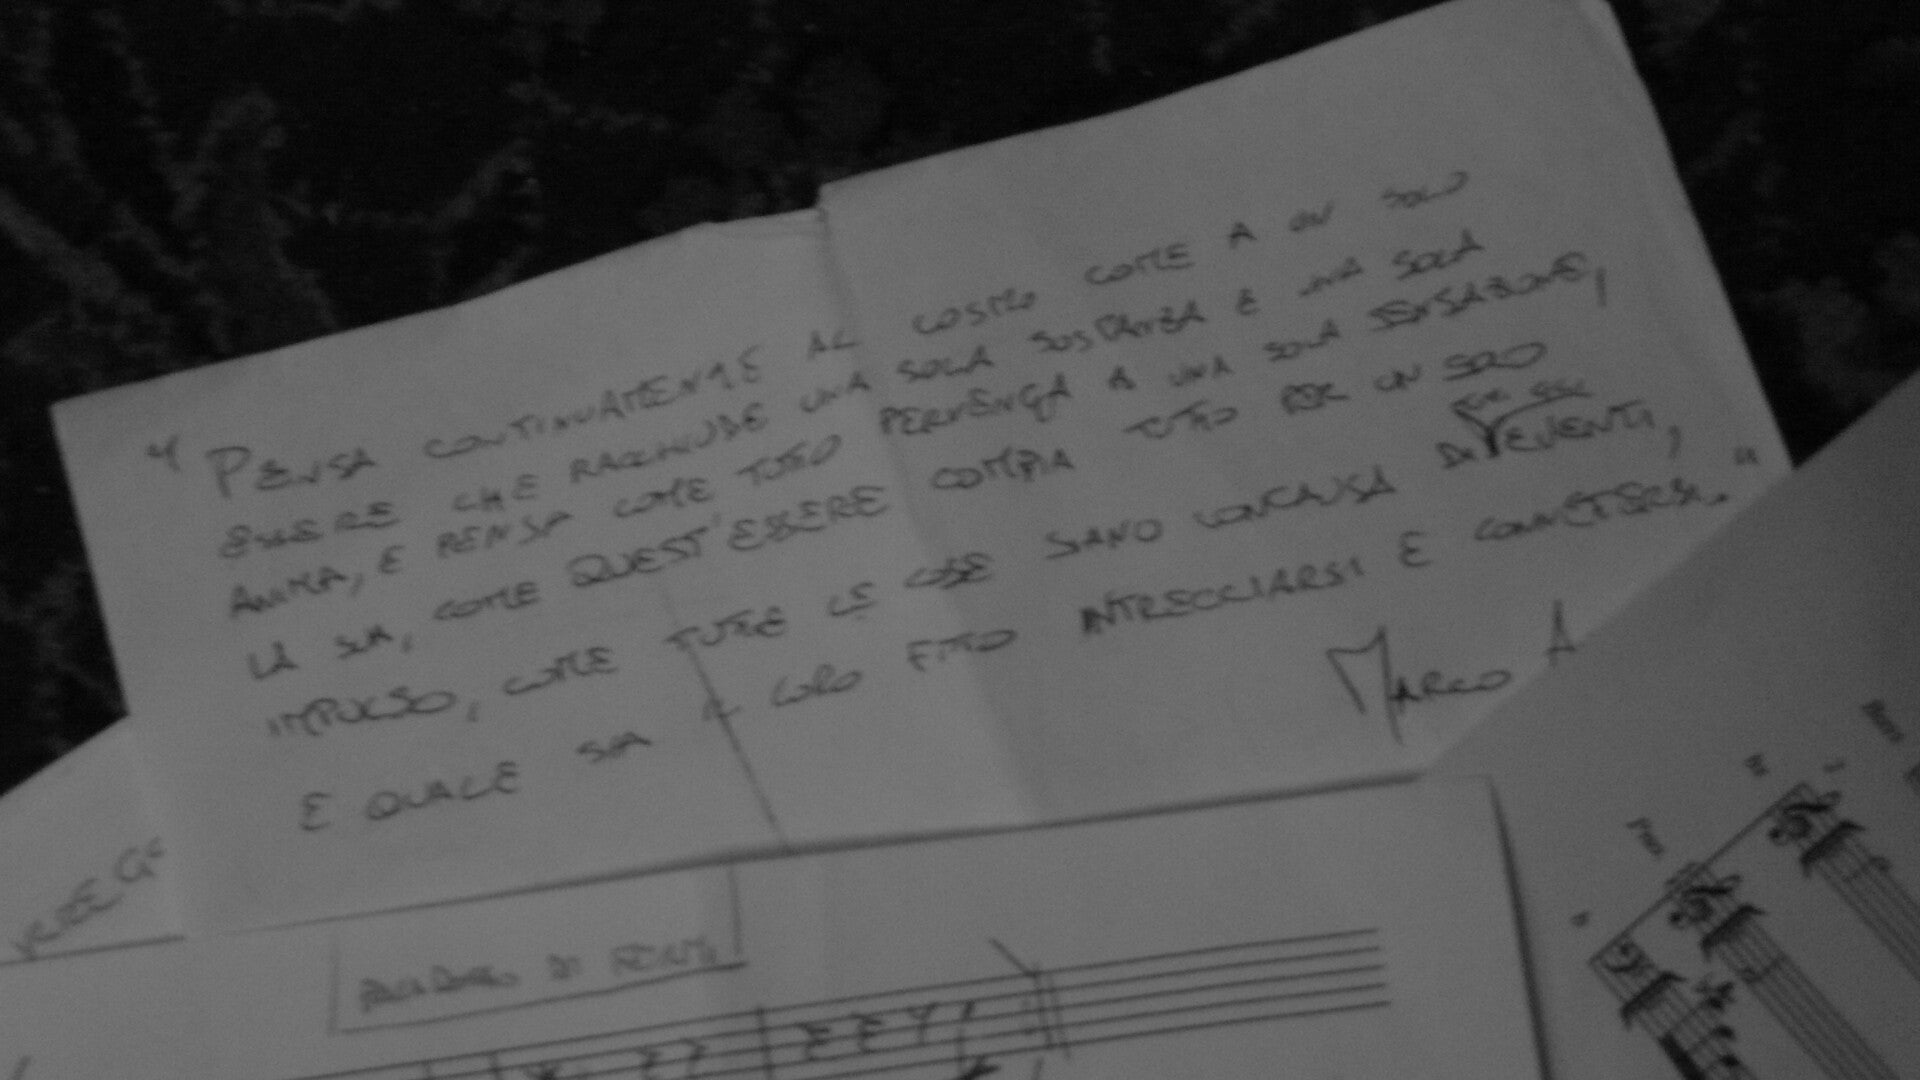 "PENSA CONTINUAMENTE AL COSMO COME A UN SOLO
ESSERE CHE RACCHIUDE UNA SOLA SOSTANZA E UNA SOLA
ANIMA, E PENSA COME TUTTO PERVENGA A UNA SOLA SENSAZIONE,
LA SUA, COME QUEST'ESSERE COMPIA TUTTO PER UN SOLO
IMPULSO, COME TUTTE LE COSE SIANO CONCAUSA DI EVENTI,
E QUALE SIA IL LORO FITTO INTRECCIARSI E CONNETTERSI."
MARCO A